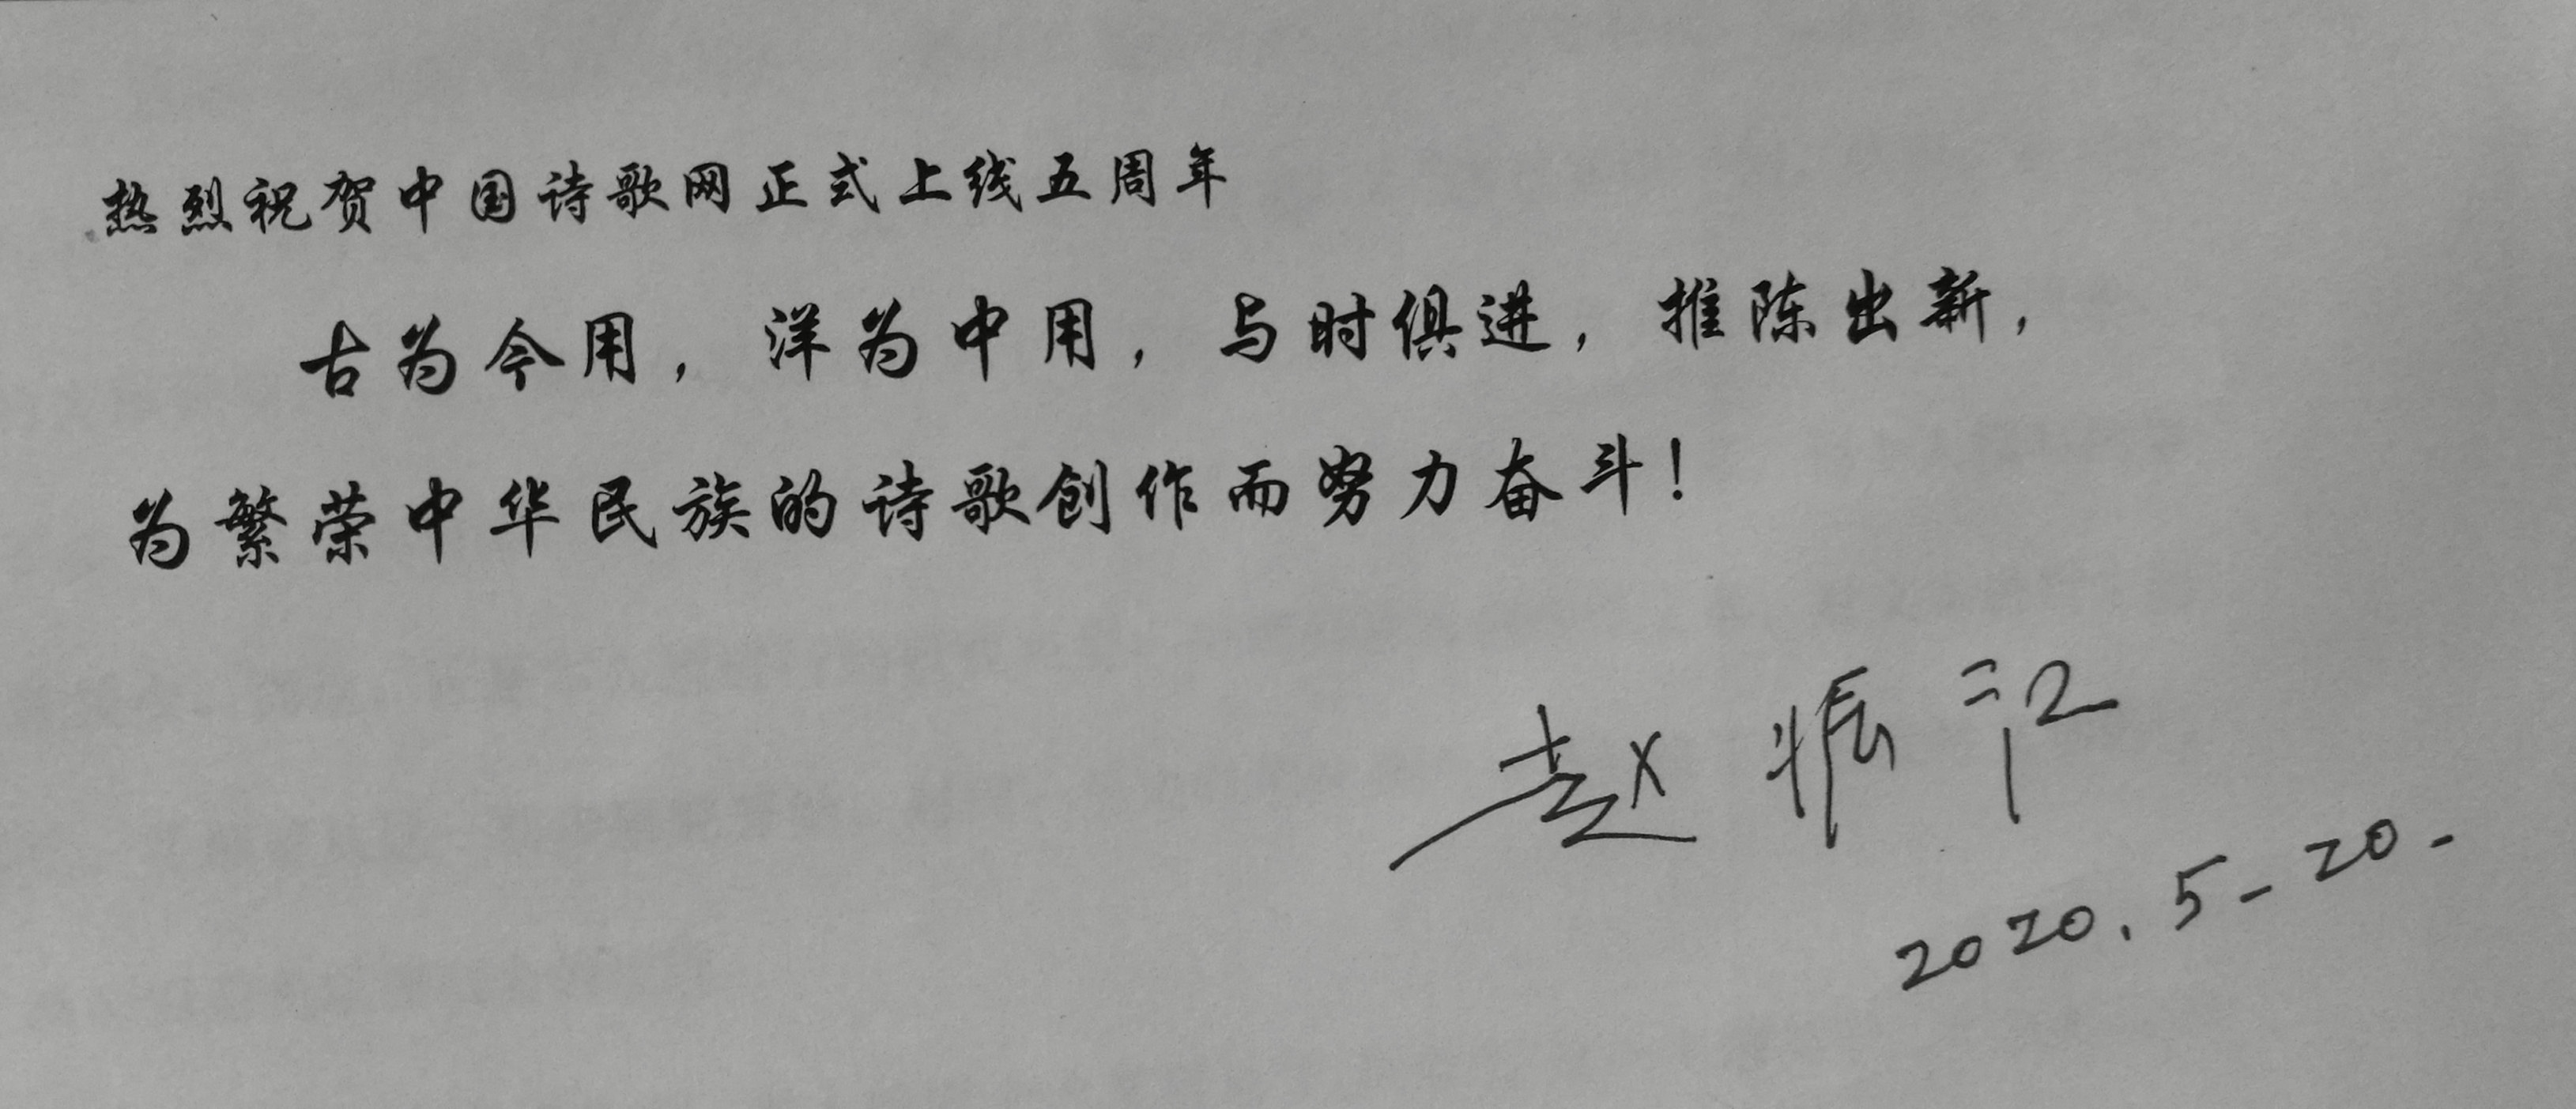 热烈祝贺中国诗歌网正式上线五周年
古为今用，洋为中用，与时俱进，推陈出新，
为繁荣中华民族的诗歌创作而努力奋斗！
赵振江
2020.5-20-